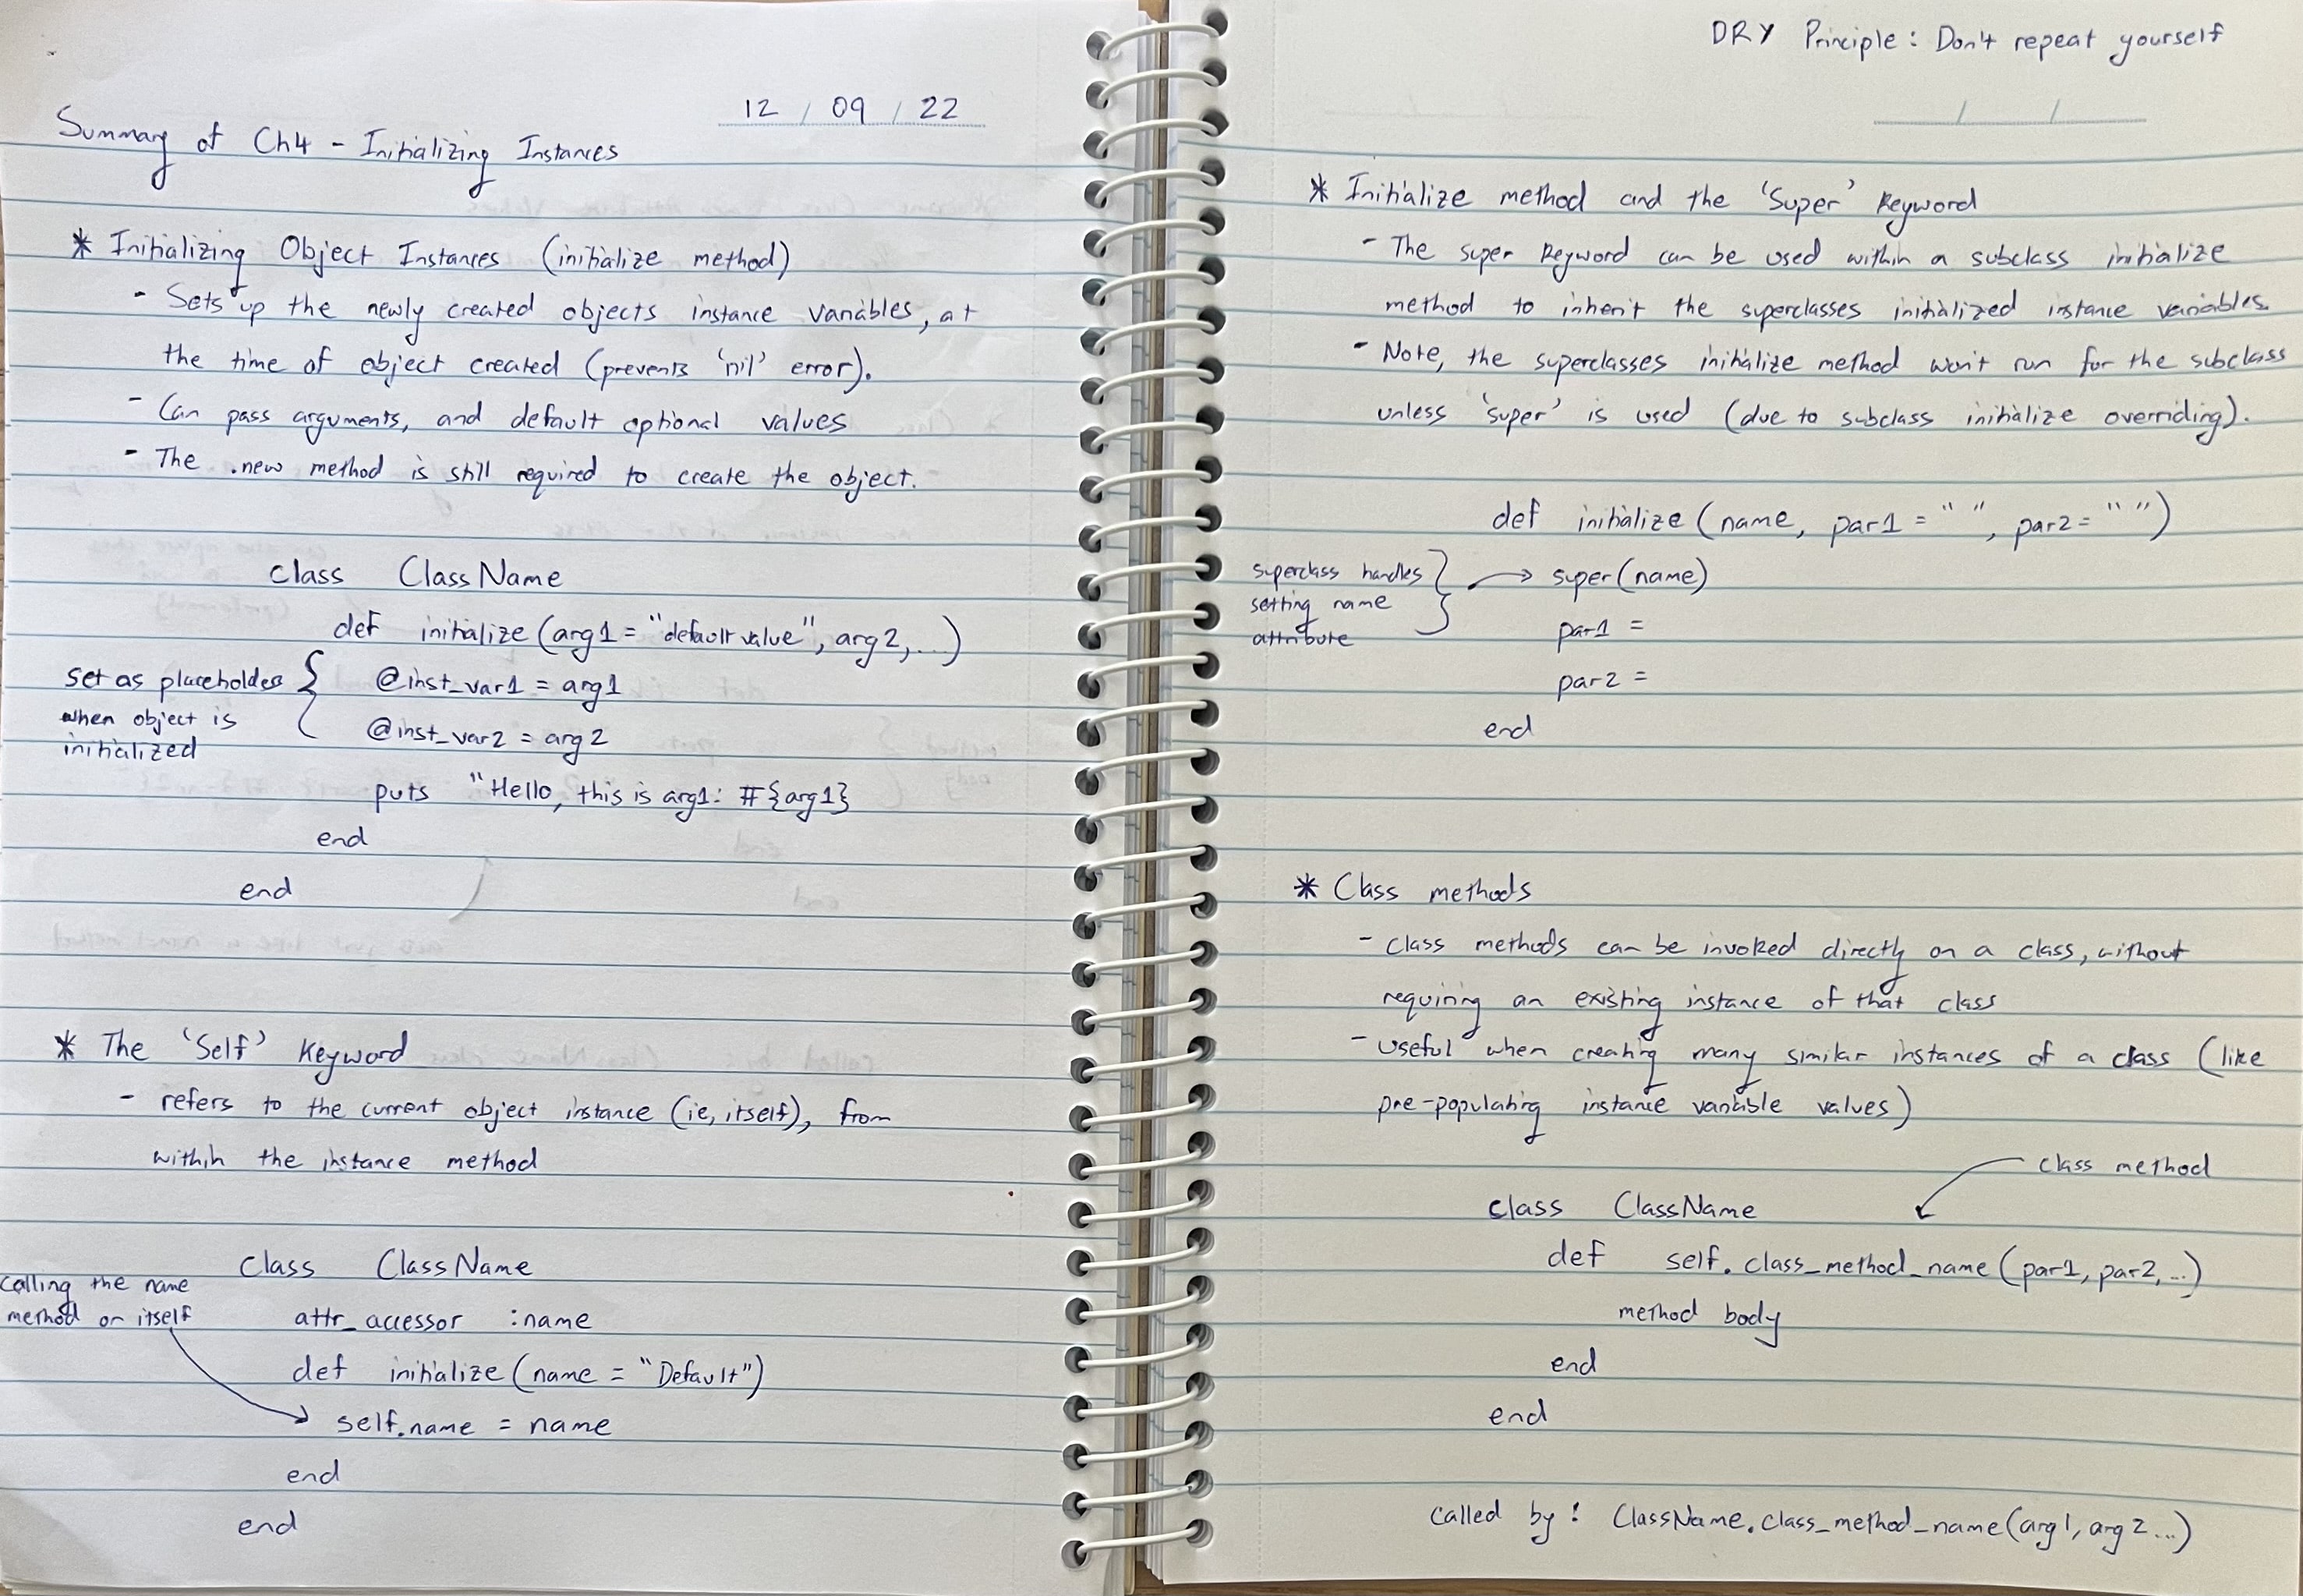 12 / 09 / 22
Summary of Ch4 - Initializing Instances
* Initializing Object Instances (initialize method)
- Sets up the newly created objects instance variables, at
the time of object created (prevents 'nil' error).
- Can pass arguments, and default optional values
- The .new method is still required to create the object.
class ClassName
def initialize (arg1 = "default value", arg2,...)
set as placeholder { @inst_var1 = arg1
when object is
@inst_var2 = arg2
initialized
puts "Hello, this is arg1: #{arg1}
end
end
* The 'Self' Keyword
- refers to the current object instance (ie, itself), from
within the instance method
class ClassName
calling the name
method on itself
attr_accessor :name
def initialize (name = "Default")
self.name = name
end
end
DRY Principle: Don't repeat yourself
/ /
* Initialize method and the 'Super' Keyword
- The super keyword can be used within a subclass initialize
method to inherit the superclasses initialized instance variables.
- Note, the superclasses initialize method won't run for the subclass
unless 'super' is used (due to subclass initialize overriding).
def initialize (name, par1 = " ", par2 = " ")
superclass handles } → super(name)
setting name
attribute
par1 =
par2 =
end
* Class methods
- class methods can be invoked directly on a class, without
requiring an existing instance of that class
- useful when creating many similar instances of a class (like
pre-populating instance variable values)
class method
class ClassName
def self.class_method_name (par1, par2, ...)
method body
end
end
called by: ClassName.class_method_name(arg1, arg2...)